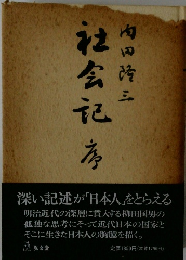 内田隆三
社会記 序
深い記述が「日本人」をとらえる
明治近代の深層に貫入する柳田国男の
孤独な思考にそって近代日本の国家と
そこに生きた日本人の胸臆を描く。
弘文堂